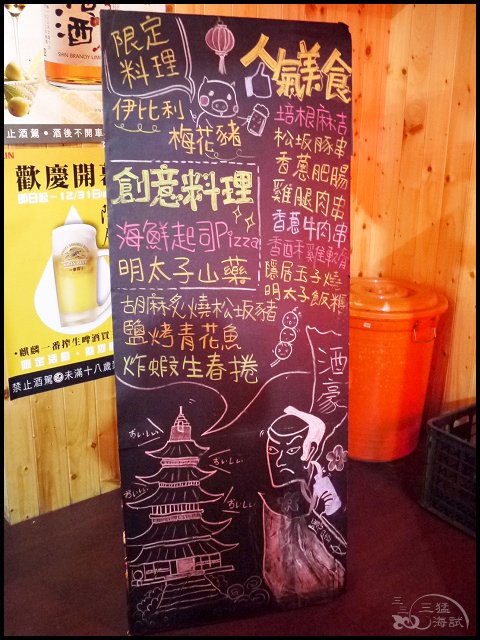 限定
料理
伊比利
梅花豬
人氣美食
培根麻吉
松坂豚串
香蔥肥腸
雞腿肉串
香蔥牛肉串
香酥雞軟骨
隱居玉子燒
明太子飯糰
創意料理
海鮮起司Pizza
明太子山藥
胡麻炙燒松坂豬
鹽烤青花魚
炸蝦生春捲
酒豪
おいしい
おいしい
おいしい
おいしい
酒
SHIN BRANDY UM
止酒駕·酒後不開車
歡慶開幕
即日起~12/31
·麒麟一番搾生啤酒買
禁止酒駕 未滿十八歲
三猛
海試